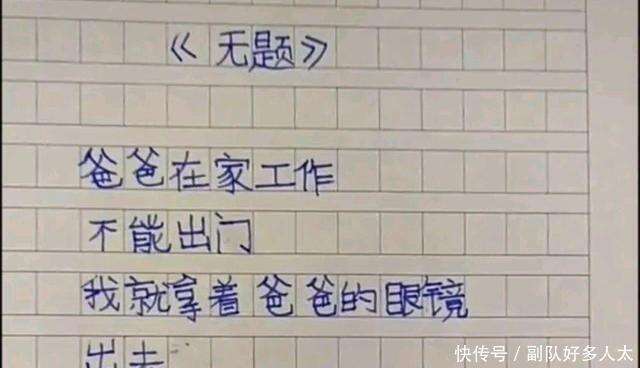 《无题》
爸爸在家工作
不能出门
我就拿着爸爸的眼镜
出去
快传号/副队好多人太